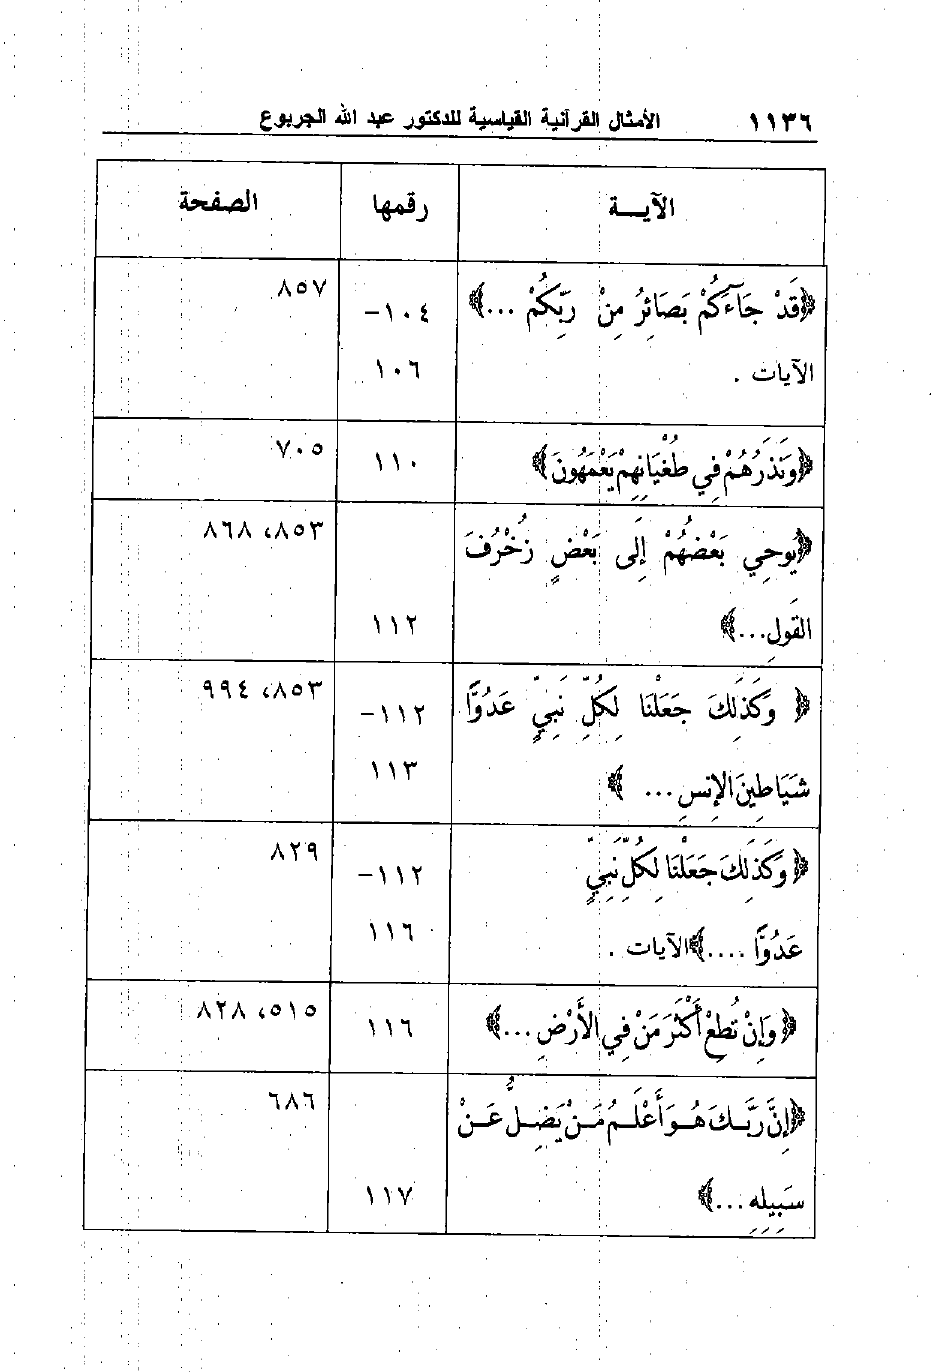 ١١٣٦ الأمثال القرآنية القياسية للدكتور عبد الله الجربوع
الآيـــة رقمها الصفحة
﴿قَدْ جَاءَكُمْ بَصَائِرُ مِنْ رَبِّكُمْ ...﴾ ١٠٤- ٨٥٧
الآيات . ١٠٦
﴿وَنَذَرُهُمْ فِي طُغْيَانِهِمْ يَعْمَهُونَ﴾ ١١٠ ٧٠٥
﴿يوحِي بَعْضُهُمْ إِلَى بَعْضٍ زُخْرُفَ ٨٥٣، ٨٦٨
القَولِ...﴾ ١١٢
﴿ وَكَذَلِكَ جَعَلْنَا لِكُلِّ نَبِيٍّ عَدُوًّا ١١٢- ٨٥٣، ٩٩٤
شَيَاطِينَ الإِنسِ ... ﴾ ١١٣
﴿ وَكَذَلِكَ جَعَلْنَا لِكُلِّ نَبِيٍّ ١١٢- ٨٢٩
عَدُوًّا ....﴾ الآيات . ١١٦
﴿ وَإِنْ تُطِعْ أَكْثَرَ مَنْ فِي الأَرْضِ ...﴾ ١١٦ ٥١٥، ٨٢٨
﴿إِنَّ رَبَّـكَ هُـوَ أَعْلَـمُ مَـنْ يَضِـلُّ عَـنْ ٦٨٦
سَبِيلِهِ ...﴾ ١١٧